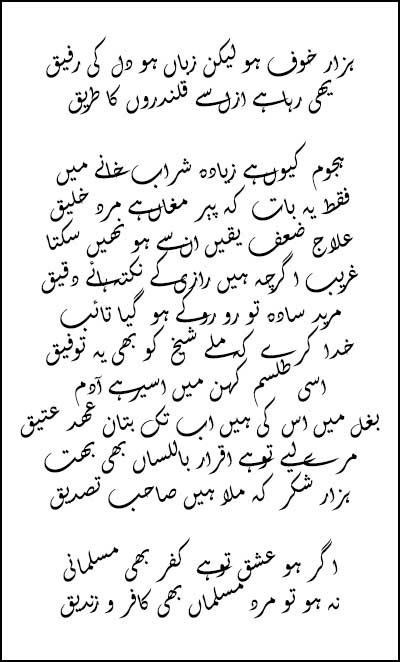 ہزار خوف ہو لیکن زباں ہو دل کی رفیق
یہی رہا ہے ازل سے قلندروں کا طریق
ہجوم کیوں ہے زیادہ شراب خانے میں
فقط یہ بات کہ پیر مغاں ہے مرد خلیق
علاج ضعف یقیں ان سے ہو نہیں سکتا
غریب اگرچہ ہیں رازی کے نکتہ ہائے دقیق
مرید سادہ تو رو رو کے ہو گیا تائب
خدا کرے کہ ملے شیخ کو بھی یہ توفیق
اسی طلسم کہن میں اسیر ہے آدم
بغل میں اس کی ہیں اب تک بتان عہد عتیق
مرے لیے تو ہے اقرار باللساں بھی بہت
ہزار شکر کہ ملا ہیں صاحب تصدیق
اگر ہو عشق تو ہے کفر بھی مسلمانی
نہ ہو تو مرد مسلماں بھی کافر و زندیق